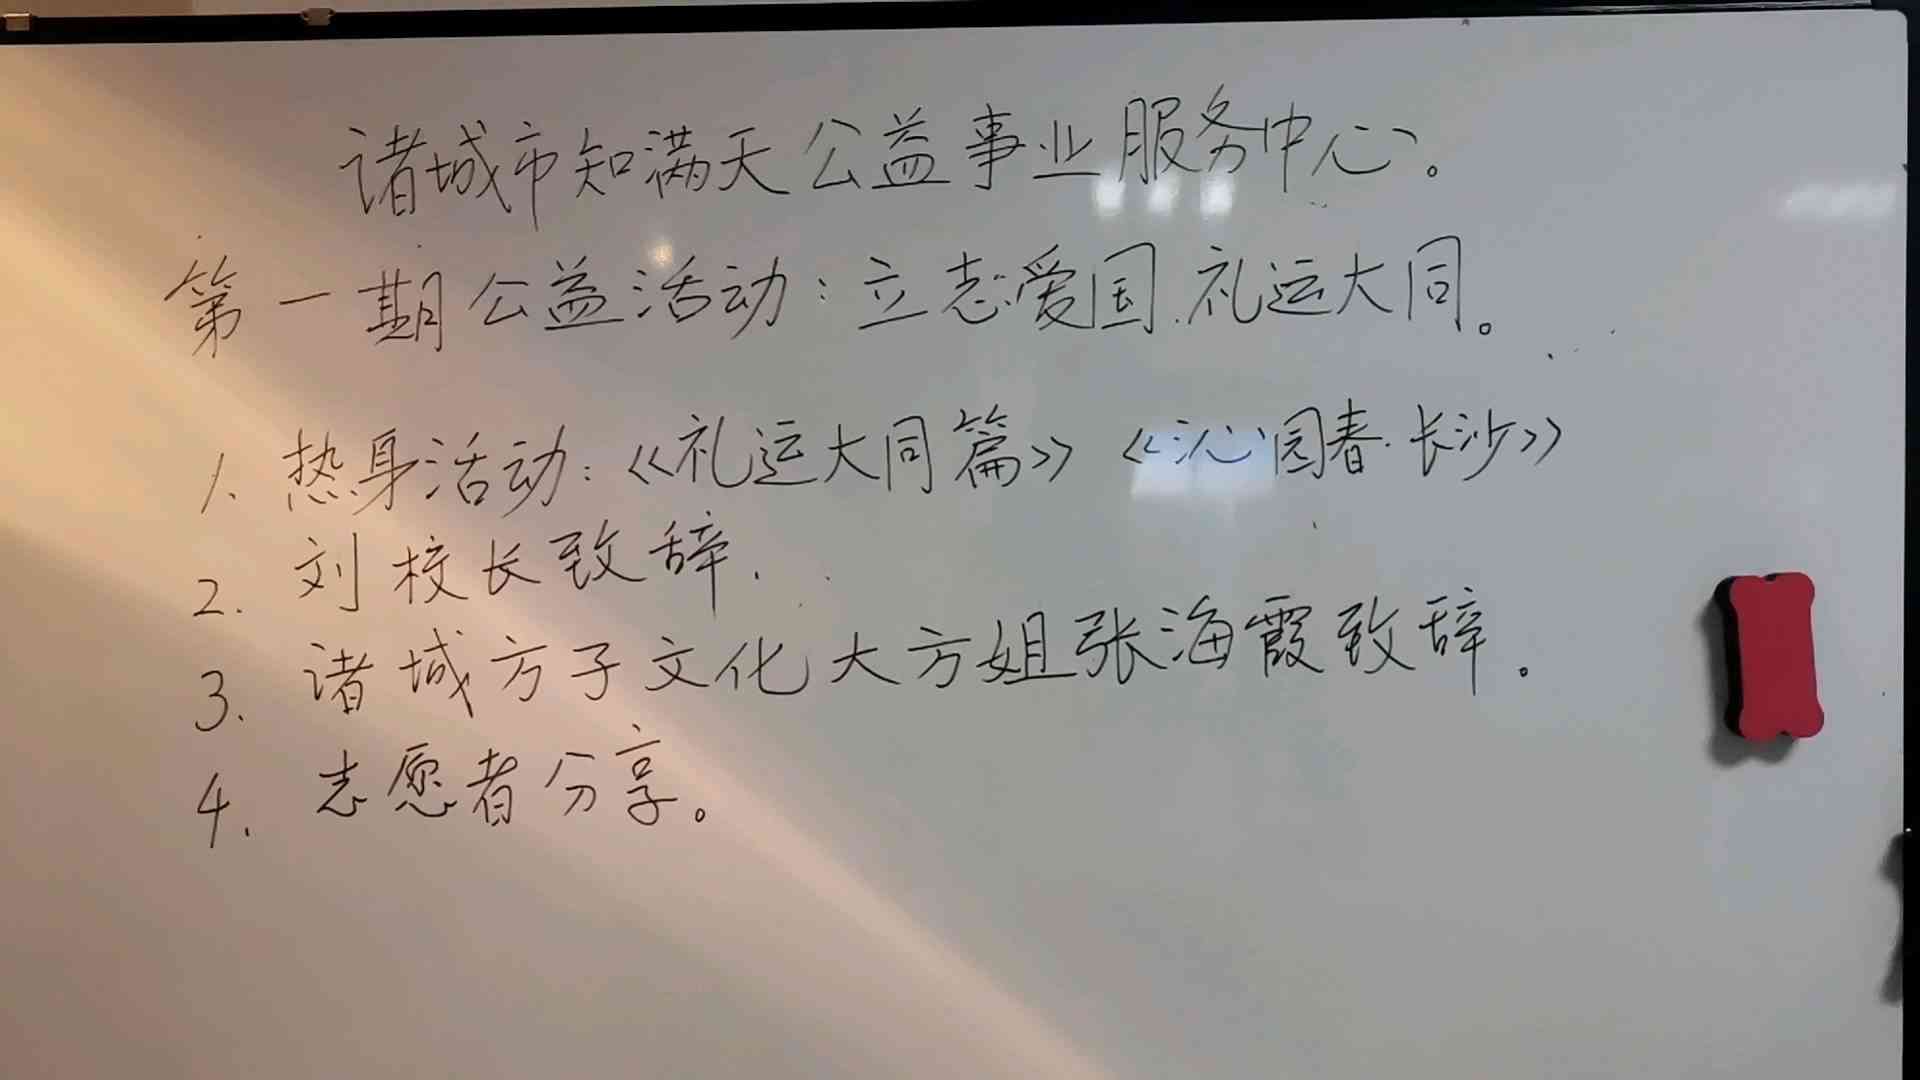 诸城市知满天公益事业服务中心。
第一期公益活动:立志爱国.礼运大同。
1. 热身活动:《礼运大同篇》《沁园春·长沙》
2. 刘校长致辞.
3. 诸城方子文化大方姐张海霞致辞。
4. 志愿者分享。